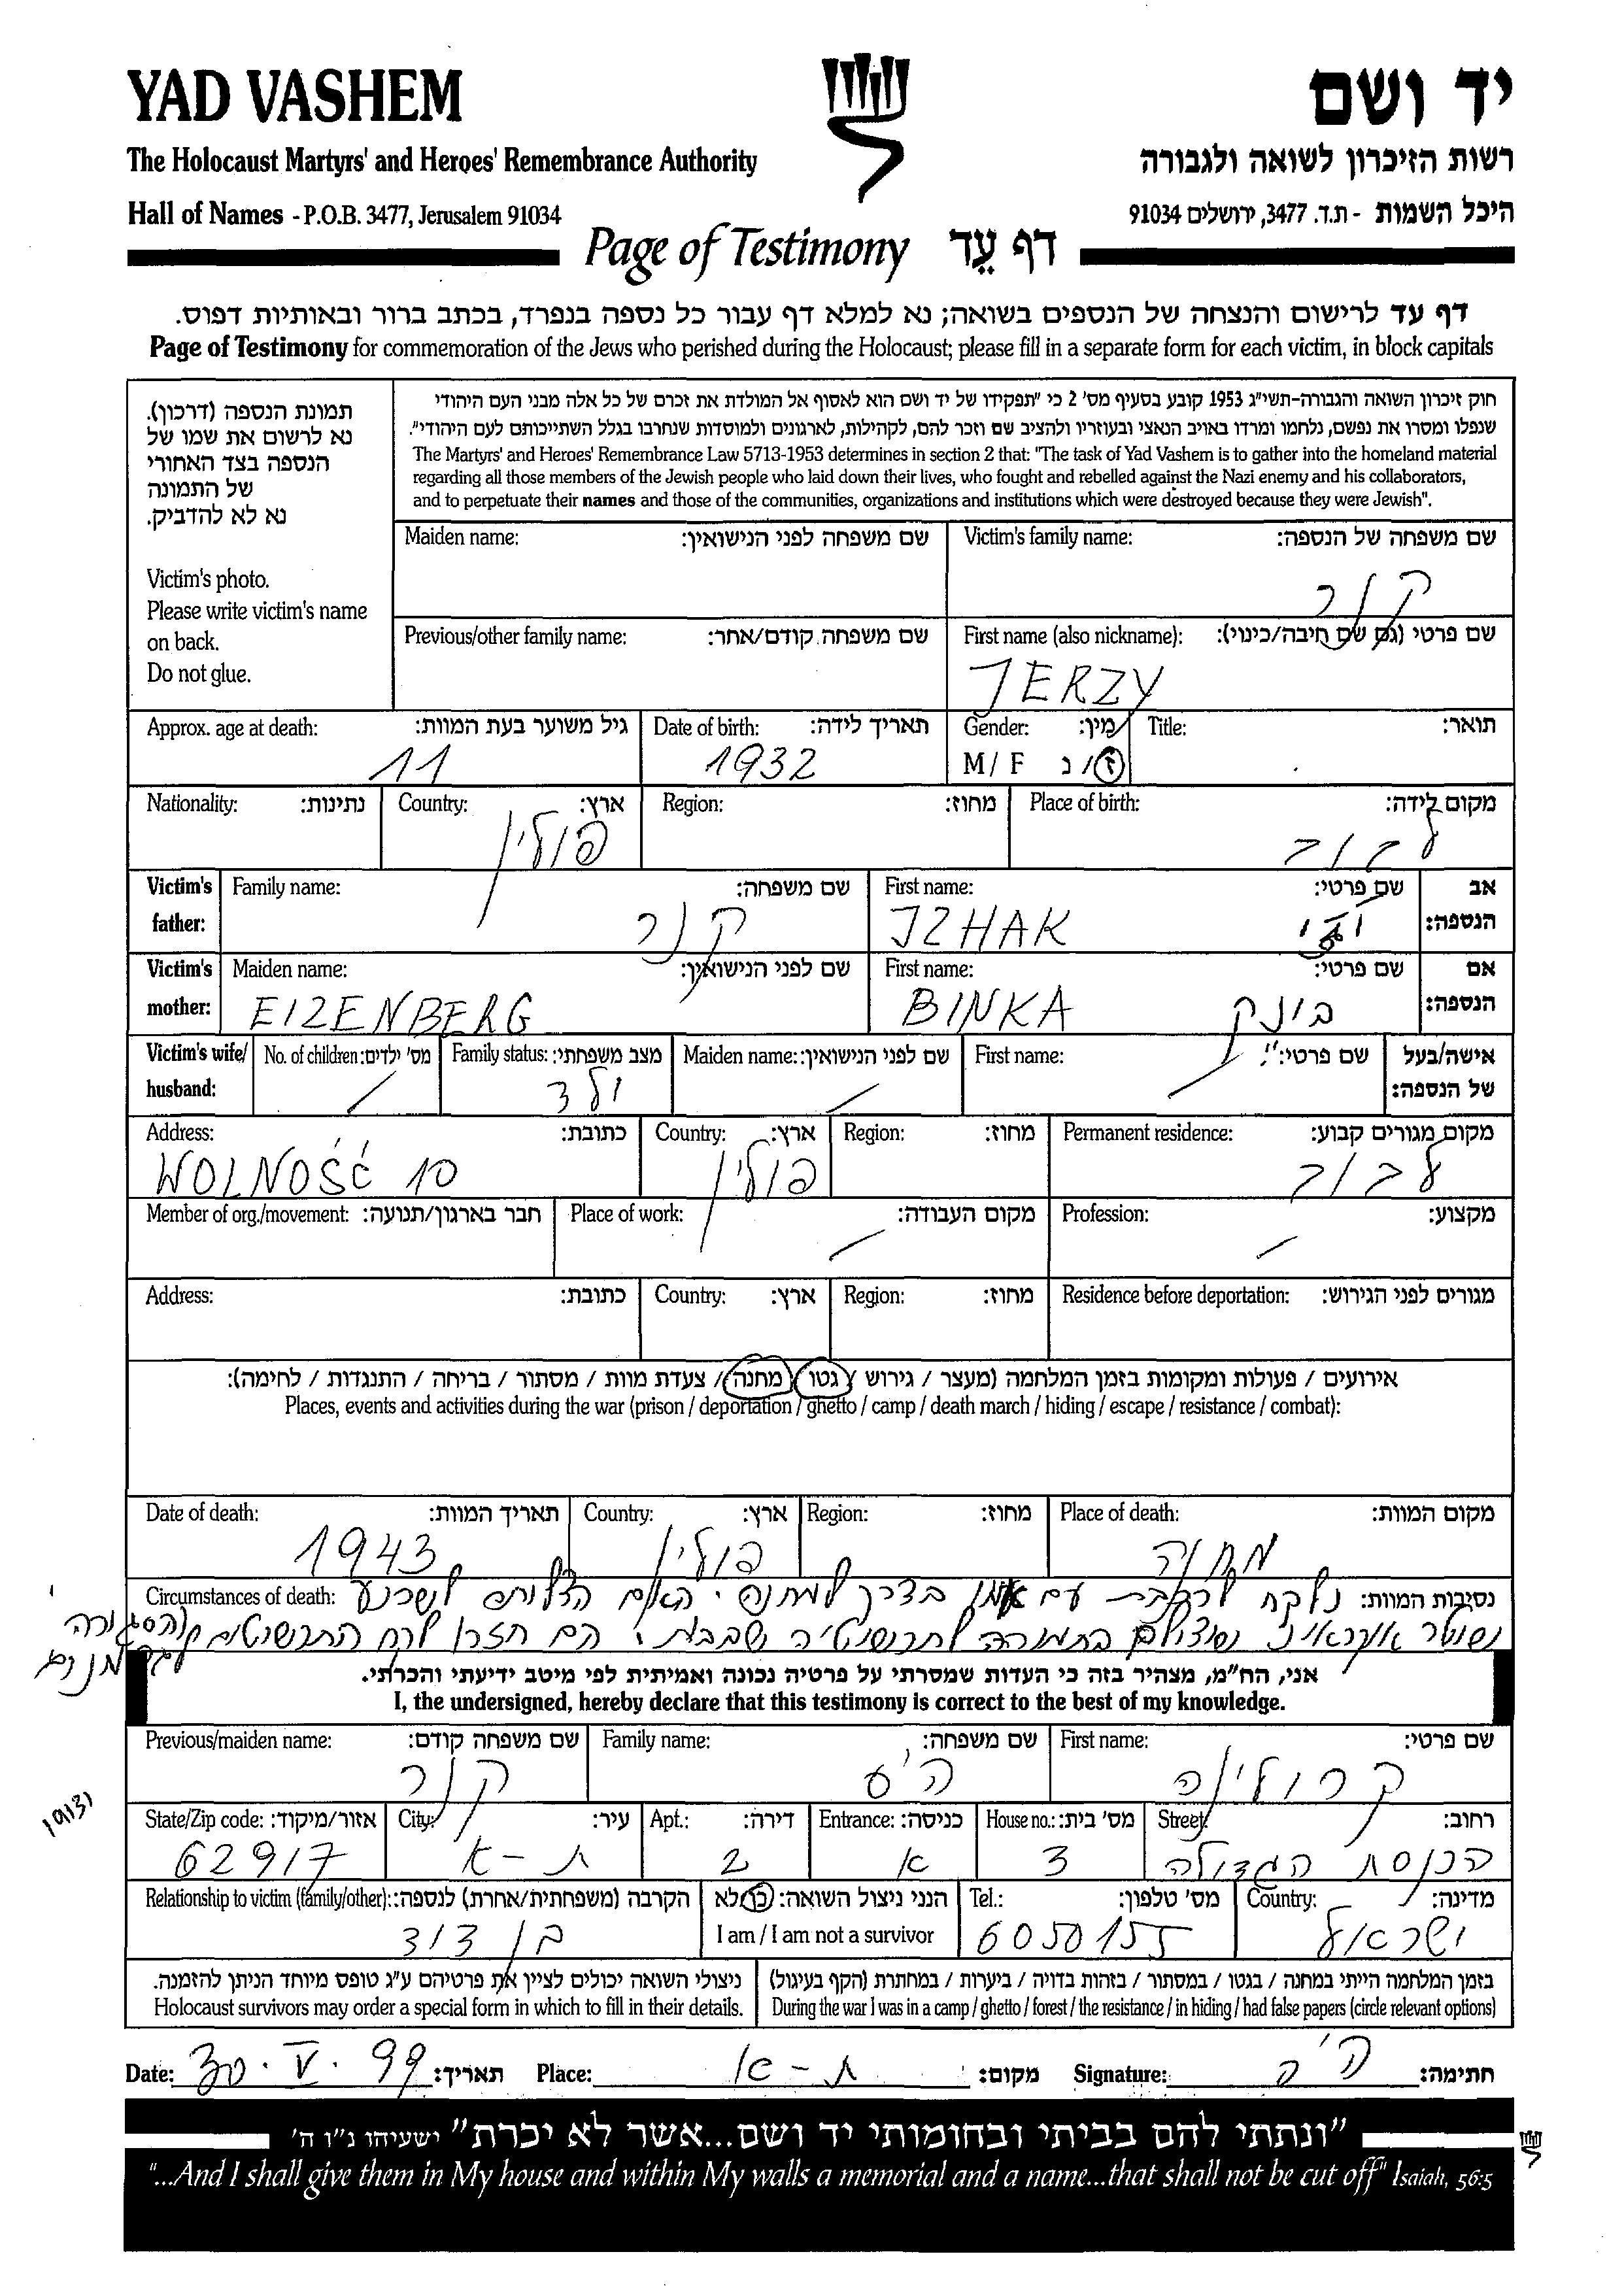 YAD VASHEM יד ושם
The Holocaust Martyrs' and Heroes' Remembrance Authority רשות הזיכרון לשואה ולגבורה
Hall of Names - P.O.B. 3477, Jerusalem 91034 היכל השמות - ת.ד. 3477, ירושלים 91034
Page of Testimony דף עֵד
דף עד לרישום והנצחה של הנספים בשואה; נא למלא דף עבור כל נספה בנפרד, בכתב ברור ובאותיות דפוס.
Page of Testimony for commemoration of the Jews who perished during the Holocaust; please fill in a separate form for each victim, in block capitals
תמונת הנספה (דרכון).
נא לרשום את שמו של
הנספה בצד האחורי
של התמונה
נא לא להדביק.
Victim's photo.
Please write victim's name
on back.
Do not glue.
חוק זיכרון השואה והגבורה-תשי"ג 1953 קובע בסעיף מס' 2 כי "תפקידו של יד ושם הוא לאסוף אל המולדת את זכרם של כל אלה מבני העם היהודי
שנפלו ומסרו את נפשם, נלחמו ומרדו באויב הנאצי ובעוזריו ולהציב שם וזכר להם, לקהילות, לארגונים ולמוסדות שנחרבו בגלל השתייכותם לעם היהודי".
The Martyrs' and Heroes' Remembrance Law 5713-1953 determines in section 2 that: "The task of Yad Vashem is to gather into the homeland material
regarding all those members of the Jewish people who laid down their lives, who fought and rebelled against the Nazi enemy and his collaborators,
and to perpetuate their names and those of the communities, organizations and institutions which were destroyed because they were Jewish".
Maiden name: שם משפחה לפני הנישואין: Victim's family name: שם משפחה של הנספה:
Previous/other family name: שם משפחה קודם/אחר: First name (also nickname): שם פרטי (גם שם חיבה/כינוי):
JERZY
Approx. age at death: גיל משוער בעת המוות: Date of birth: תאריך לידה: Gender: מין: Title: תואר:
11 1932 M / F ז / נ
Nationality: נתינות: Country: ארץ: Region: מחוז: Place of birth: מקום לידה:
פולין לבוב
Victim's father: Family name: שם משפחה: First name: שם פרטי: אב הנספה:
IZHAK
Victim's mother: Maiden name: שם לפני הנישואין: First name: שם פרטי: אם הנספה:
EIZENBERG BINKA
Victim's wife/ husband: No. of children: מס' ילדים: Family status: מצב משפחתי: Maiden name: שם לפני הנישואין: First name: שם פרטי: אישה/בעל של הנספה:
ילד
Address: כתובת: Country: ארץ: Region: מחוז: Permanent residence: מקום מגורים קבוע:
WOLNOŚĆ 10 פולין לבוב
Member of org./movement: חבר בארגון/תנועה: Place of work: מקום העבודה: Profession: מקצוע:
Address: כתובת: Country: ארץ: Region: מחוז: Residence before deportation: מגורים לפני הגירוש:
אירועים / פעולות ומקומות בזמן המלחמה (מעצר / גירוש / גטו / מחנה / צעדת מוות / מסתור / בריחה / התנגדות / לחימה):
Places, events and activities during the war (prison / deportation / ghetto / camp / death march / hiding / escape / resistance / combat):
Date of death: תאריך המוות: Country: ארץ: Region: מחוז: Place of death: מקום המוות:
1943 פולין מחנה
Circumstances of death: נסיבות המוות: נלקח לרכבת עם אמו בדרך למחנה
אני, הח"מ, מצהיר בזה כי העדות שמסרתי על פרטיה נכונה ואמיתית לפי מיטב ידיעתי והכרתי.
I, the undersigned, hereby declare that this testimony is correct to the best of my knowledge.
Previous/maiden name: שם משפחה קודם: Family name: שם משפחה: First name: שם פרטי:
קרולינה
State/Zip code: אזור/מיקוד: City: עיר: Apt.: דירה: Entrance: כניסה: House no.: מס' בית: Street: רחוב:
62917 ת-א 2 א 3 הכנסת הגדולה
Relationship to victim (family/other): הקרבה (משפחתית/אחרת) לנספה: הנני ניצול השואה: כן/לא Tel.: מס' טלפון: Country: מדינה:
בן דוד I am / I am not a survivor 6050155 ישראל
ניצולי השואה יכולים לציין את פרטיהם ע"ג טופס מיוחד הניתן להזמנה. בזמן המלחמה הייתי במחנה / בגטו / במסתור / בזהות בדויה / ביערות / במחתרת (הקף בעיגול)
Holocaust survivors may order a special form in which to fill in their details. During the war I was in a camp / ghetto / forest / the resistance / in hiding / had false papers (circle relevant options)
Date: 30.V.99 תאריך: Place: ת-א מקום: Signature: חתימה:
"ונתתי להם בביתי ובחומותי יד ושם...אשר לא יכרת" ישעיהו נ"ו ה'
"...And I shall give them in My house and within My walls a memorial and a name...that shall not be cut off" Isaiah, 56:5